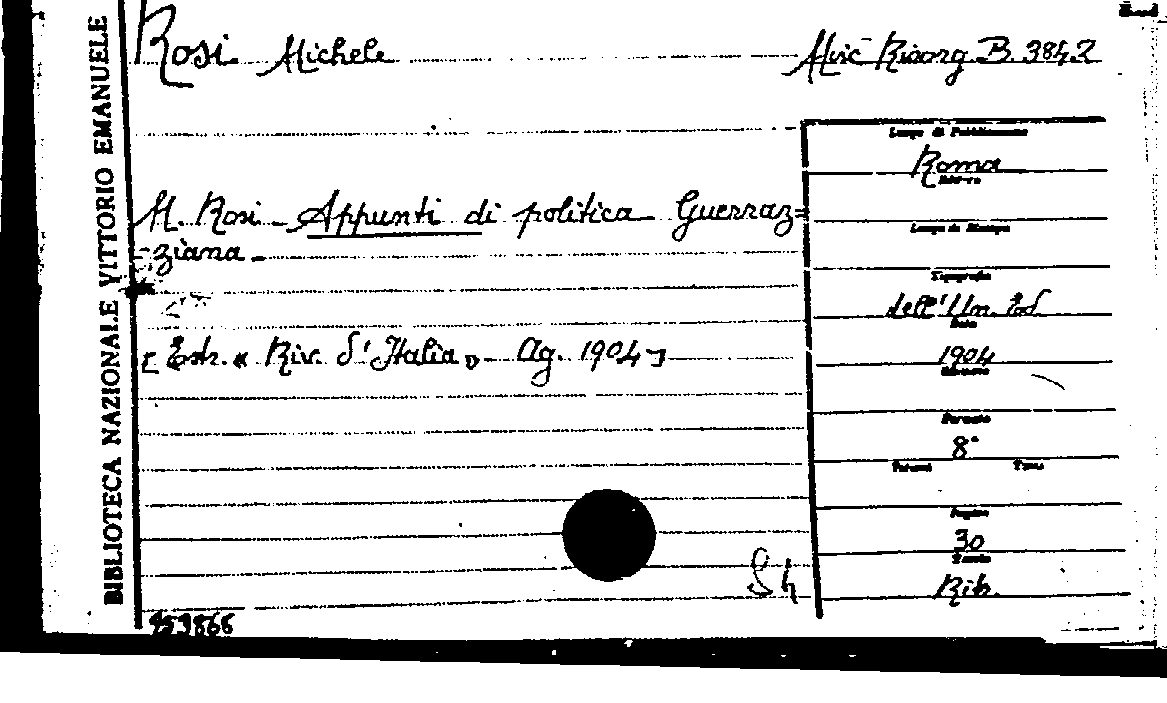 Rosi Michele
Misc Risorg B. 384.2
M. Rosi - Appunti di politica Guerraz=
=ziana -
[Estr. « Riv. d'Italia » - Ag. 1904]
BIBLIOTECA NAZIONALE VITTORIO EMANUELE
Luogo di Pubblicazione
Roma
Editore
Luogo di Stampa
Tipografia
dell'Un. Ed.
Data
1904
Edizione
Formato
8°
Volumi Tomo
Pagine
30
Tavole
Rib.